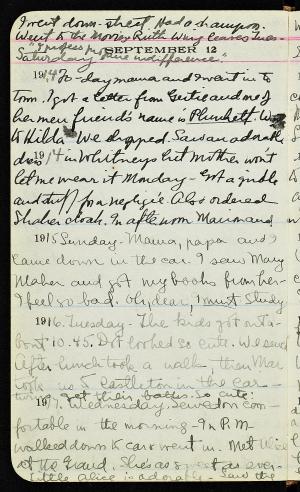 I went down-street. Had a shampoo.
Went to the Movies Ruth Wing leaves Tues
"I profess
Saturday pure indifference."
SEPTEMBER 12
1914 To-day mama and I went in to
Tom. I got a letter from Gertie and one of
her men friends's name is Plunkett. W
to Hilda We shopped. Saw an adorable
dress 1914 in Whitneys but Mother won't
let me wear it Monday - Got a
and stuff for a negligie. Also ordered
Shaker cloak. In afternoon Mama and
1915 Sunday - Mama, papa and I
came down in the car. I saw Mary
Maher and got my books from her-
I feel so bad. Oh, dear, I must study
1916. Tuesday - The kids got out a-
bout 10.45. Dot looked so cute. We sewed
After lunch took a walk, then Mar
took us to Castleton in the car -
get their baths. So cute.
1917. Wednesday. Sewed on com-
fortable in the morning - In P.M-
walked down to car & went in. Met Alice
at the Grand. She's as sweet as ever-
Little Alice is adorable - Saw the